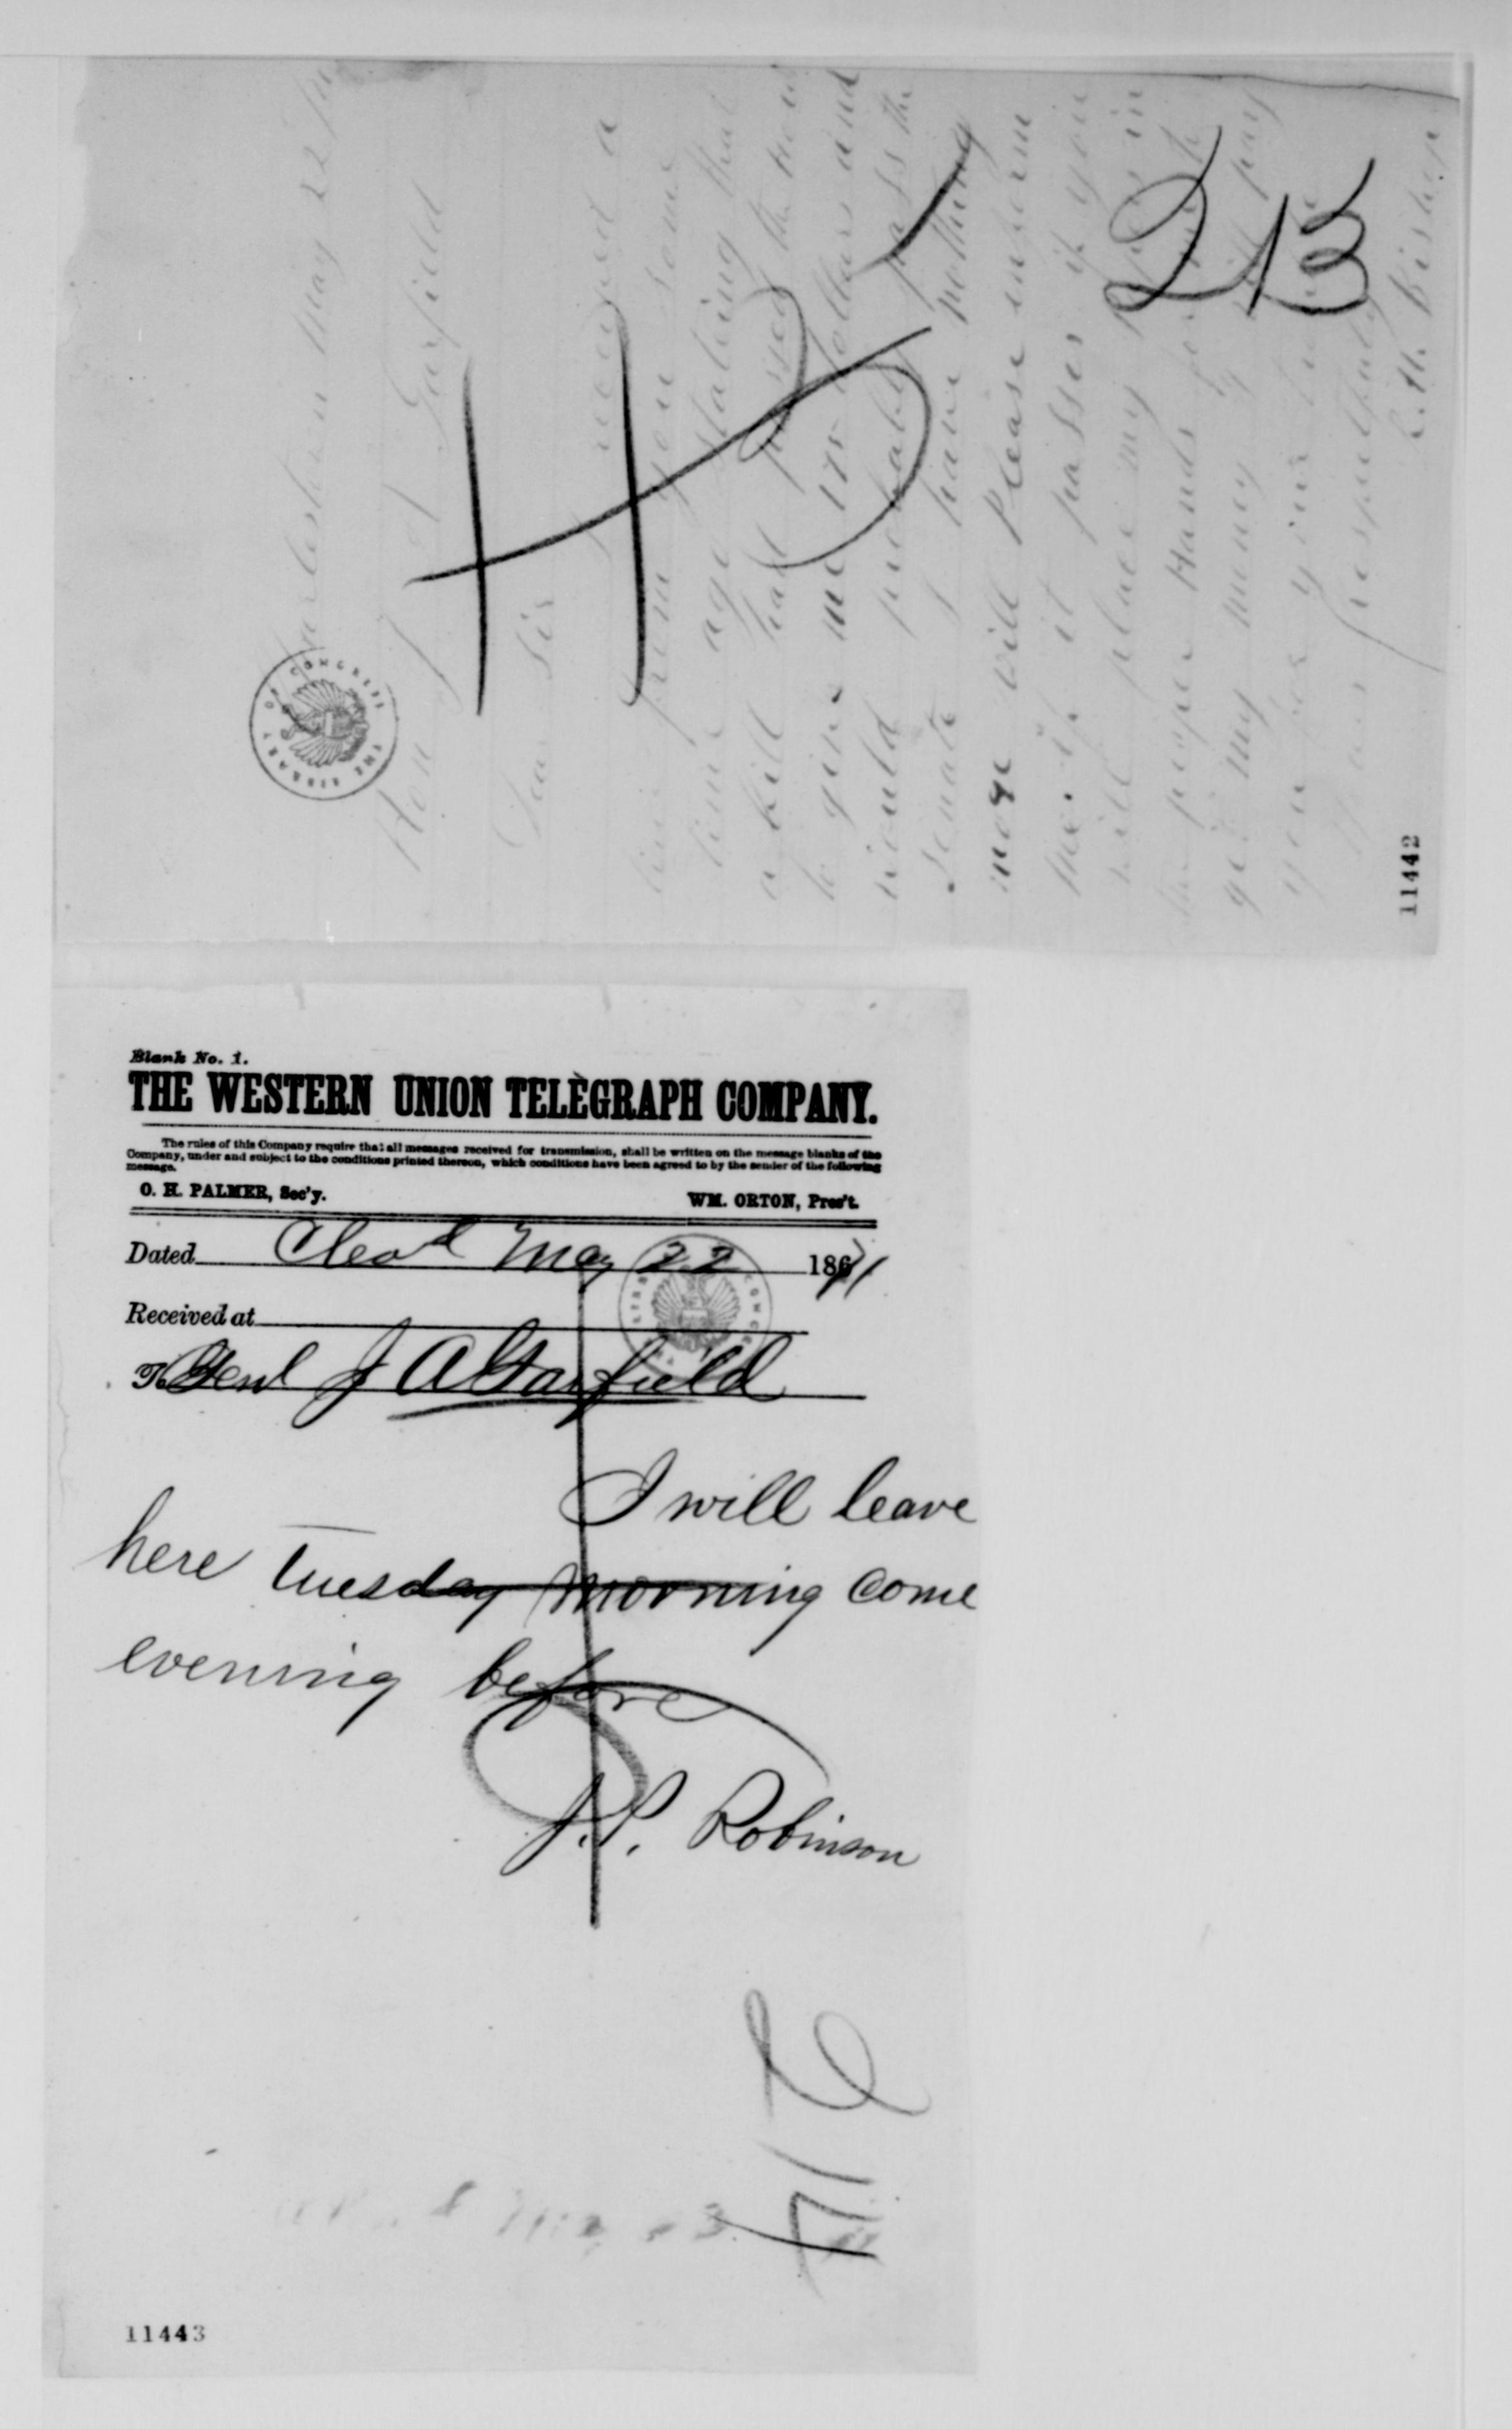 Charlestown May 22 /71
Hon J A Garfield
Dear Sir I received a
line from you some
time ago stating that
a bill had passed the house
to give me 175 dollars and
would probably pass the
Senate I have nothing
more will Please inform
me if it passes if you
will place my Papers in
the proper Hands for me to
get my money I will pay
you for your trouble
Yours respectfully
L. H. Bishop
213
11442
Blank No. 1.
THE WESTERN UNION TELEGRAPH COMPANY.
The rules of this Company require that all messages received for transmission, shall be written on the message blanks of the
Company, under and subject to the conditions printed thereon, which conditions have been agreed to by the sender of the following
message.
O. H. PALMER, Sec'y. WM. ORTON, Pres't.
Dated Clevd May 22 1871
Received at
To Genl J A Garfield
I will leave
here tuesday morning come
evening before
J.P. Robinson
214
11443